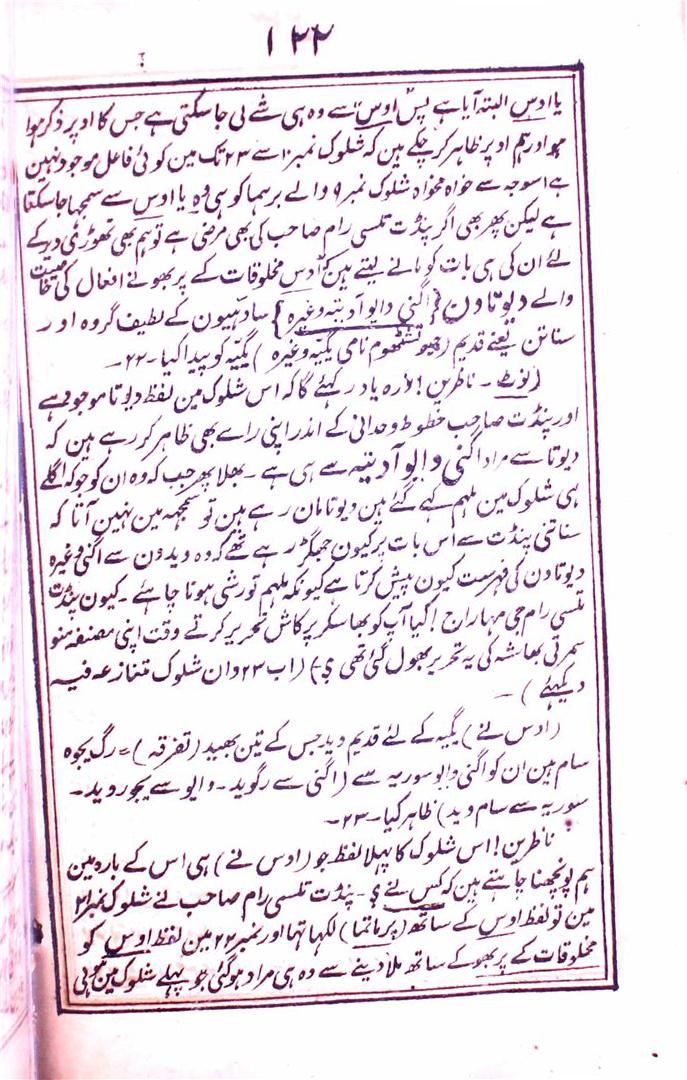 ۱۲۲
یا اوس البتہ آیا ہے پس اوس سے وہ ہی شے لی جا سکتی ہے جس کا اوپر ذکر ہوا
ہو اور ہم اوپر ظاہر کر چکے ہیں کہ شلوک نمبر ۱۰ سے ۲۳ تک مین کوئی فاعل موجود نہین
ہے اسوجہ سے خواہ مخواہ شلوک نمبر ۹ والے برہما کو ہی وہ یا اوس سے سمجھا جا سکتا
ہے لیکن پھر بھی اگر پنڈت تلسی رام صاحب کی بھی مرضی ہے تو ہم بھی تھوڑی دیر کے
لئے ان کی ہی بات کو مانے لیتے ہین کہ اوس مخلوقات کے پربھو نے افعال کی خاصیت
والے دیوتاون {اگنی وایو آدیتیہ وغیرہ} سادہیون کے لطیف گروہ اور
سناتن یعنے قدیم (جیوتشٹھوم نامی یگیہ وغیرہ) یگیہ کو پیدا کیا۔ ۲۲۔
(نوٹ۔ ناظرین! ذرہ یاد رکھئے گا کہ اس شلوک مین لفظ دیوتا موجود ہے
اور پنڈت صاحب خطوط وحدانی کے اندر اپنی راے بھی ظاہر کر رہے ہین کہ
دیوتا سے مراد اگنی وایو آدیتیہ سے ہی ہے۔ بھلا پھر جب کہ وہ ان کو جو کہ اگلے
ہی شلوک مین ملہم کہے گئے ہین دیوتا مان رہے ہین تو سمجھہ مین نہین آتا کہ
سناتنی پنڈت سے اس بات پر کیون جھگڑ رہے تھے کہ وہ ویدون سے اگنی وغیرہ
دیوتاون کی فہرست کیون پیش کرتا ہے کیونکہ ملہم تو رشی ہونا چاہئے۔ کیون پنڈت
تلسی رام جی مہاراج! کیا آپ کو بھاسکر پرکاش تحریر کرتے وقت اپنی مصنفہ منو
سمرتی بھاشہ کی یہ تحریر بھول گئی تھی؟) (اب ۲۳ وان شلوک متنازعہ فیہ
دیکھئے)۔
(اوس نے) یگیہ کے لئے قدیم وید جس کے تین بھید (تفرقہ) = رگ یجوہ
سام ہین ان کو اگنی وایو سوریہ سے (اگنی سے رگوید۔ وایو سے یجور وید۔
سوریہ سے سام وید) ظاہر کیا۔ ۲۳۔
ناظرین! اس شلوک کا پہلا لفظ جو (اوس نے) ہی اس کے بارہ مین
ہم پونچھنا چاہتے ہین کہ کس نے؟۔ پنڈت تلسی رام صاحب نے شلوک نمبر ۲۱
مین تو لفظ اوس کے ساتھ (پرماتما) لکھا تھا اور نمبر ۲۲ مین لفظ اوس کو
مخلوقات کے پربھو کے ساتھ ملا دینے سے وہ ہی مراد ہو گئی جو پہلے شلوک مین تھی